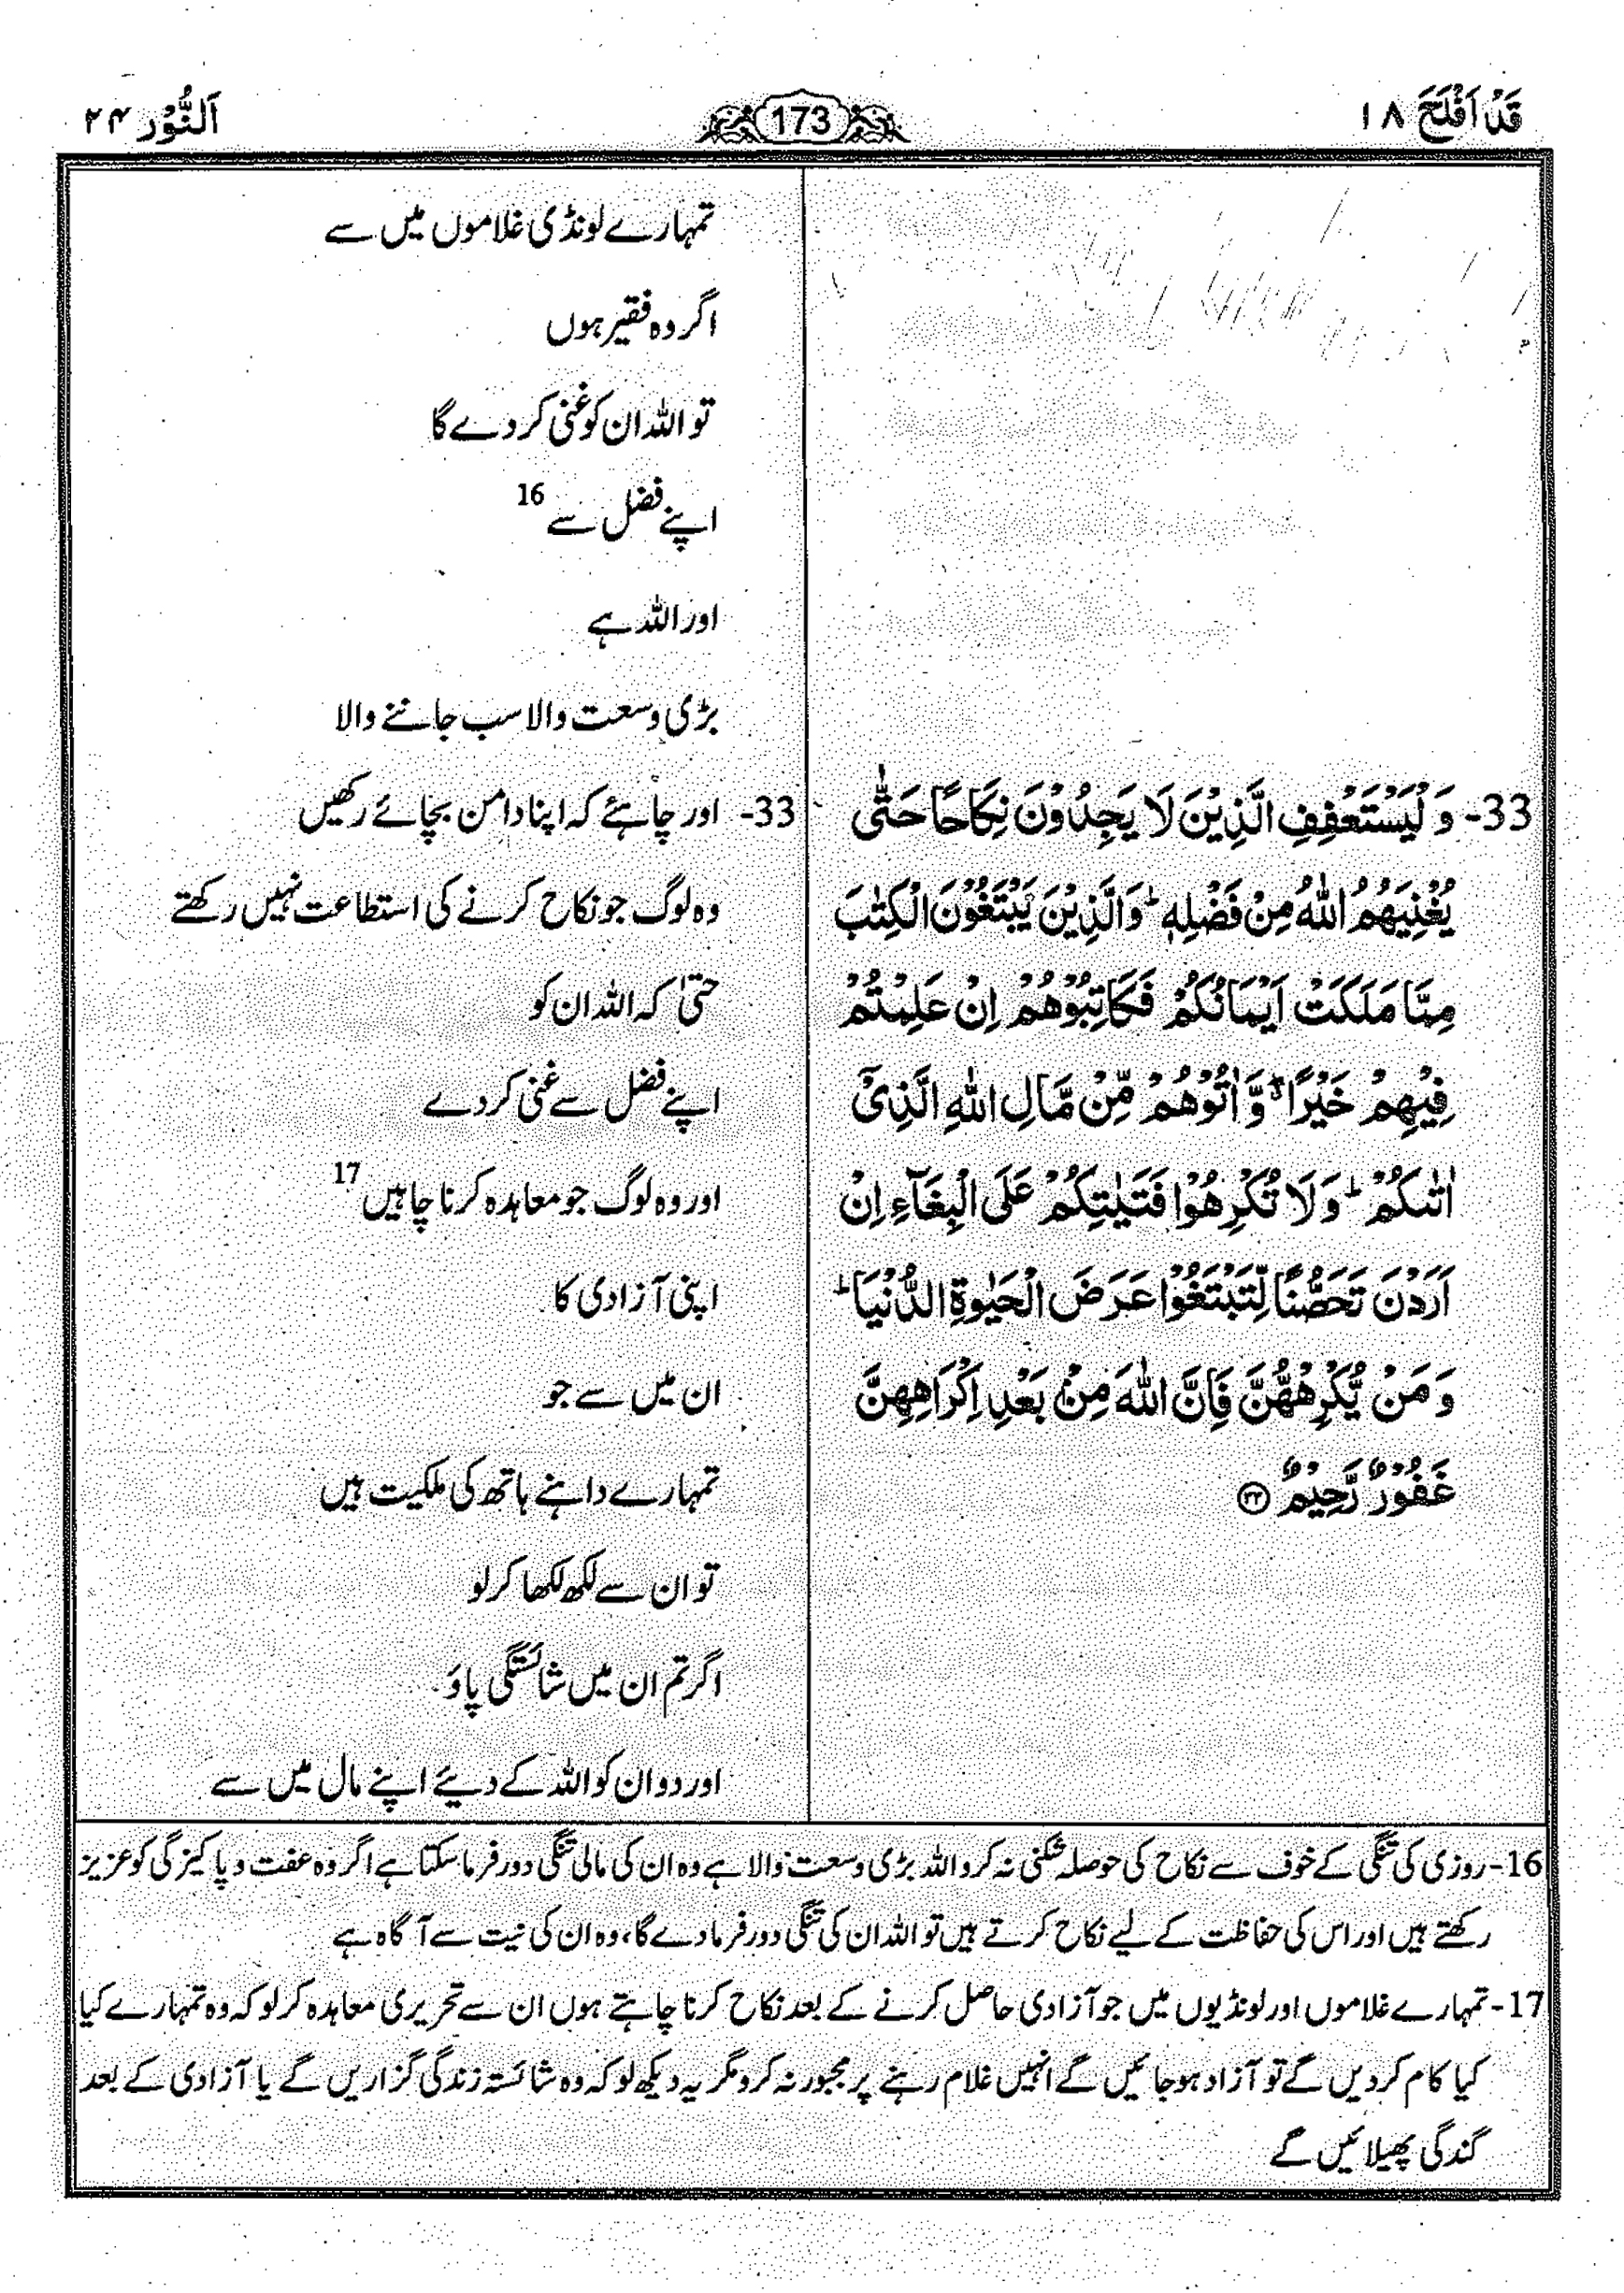 قَدْ اَفْلَحَ ۱۸
173
اَلنُّوْر ۲۴
تمہارے لونڈی غلاموں میں سے
اگر وہ فقیر ہوں
تو اللہ ان کو غنی کر دے گا
اپنے فضل سے 16
اور اللہ ہے
بڑی وسعت والا سب جاننے والا
33- وَ لْیَسْتَعْفِفِ الَّذِیْنَ لَا یَجِدُوْنَ نِكَاحًا حَتّٰی
یُغْنِیَهُمُ اللّٰهُ مِنْ فَضْلِهٖ ؕ وَ الَّذِیْنَ یَبْتَغُوْنَ الْكِتٰبَ
مِمَّا مَلَكَتْ اَیْمَانُكُمْ فَكَاتِبُوْهُمْ اِنْ عَلِمْتُمْ
فِیْهِمْ خَیْرًا ۖۗ وَّ اٰتُوْهُمْ مِّنْ مَّالِ اللّٰهِ الَّذِیْۤ
اٰتٰىكُمْ ؕ وَ لَا تُكْرِهُوْا فَتَیٰتِكُمْ عَلَی الْبِغَآءِ اِنْ
اَرَدْنَ تَحَصُّنًا لِّتَبْتَغُوْا عَرَضَ الْحَیٰوةِ الدُّنْیَا ؕ
وَ مَنْ یُّكْرِهْهُّنَّ فَاِنَّ اللّٰهَ مِنْۢ بَعْدِ اِكْرَاهِهِنَّ
غَفُوْرٌ رَّحِیْمٌ ۝۳۳
33- اور چاہئے کہ اپنا دامن بچائے رکھیں
وہ لوگ جو نکاح کرنے کی استطاعت نہیں رکھتے
حتیٰ کہ اللہ ان کو
اپنے فضل سے غنی کر دے
اور وہ لوگ جو معاہدہ کرنا چاہیں 17
اپنی آزادی کا
ان میں سے جو
تمہارے داہنے ہاتھ کی ملکیت ہیں
تو ان سے لکھ لکھا کر لو
اگر تم ان میں شائستگی پاؤ
اور دو ان کو اللہ کے دیئے اپنے مال میں سے
16- روزی کی تنگی کے خوف سے نکاح کی حوصلہ شکنی نہ کرو اللہ بڑی وسعت والا ہے وہ ان کی مالی تنگی دور فرما سکتا ہے اگر وہ عفت و پاکیزگی کو عزیز
رکھتے ہیں اور اس کی حفاظت کے لیے نکاح کرتے ہیں تو اللہ ان کی تنگی دور فرما دے گا، وہ ان کی نیت سے آگاہ ہے
17- تمہارے غلاموں اور لونڈیوں میں جو آزادی حاصل کرنے کے بعد نکاح کرنا چاہتے ہوں ان سے تحریری معاہدہ کر لو کہ وہ تمہارے کیا
کیا کام کر دیں گے تو آزاد ہو جائیں گے انہیں غلام رہنے پر مجبور نہ کرو مگر یہ دیکھ لو کہ وہ شائستہ زندگی گزاریں گے یا آزادی کے بعد
گندگی پھیلائیں گے